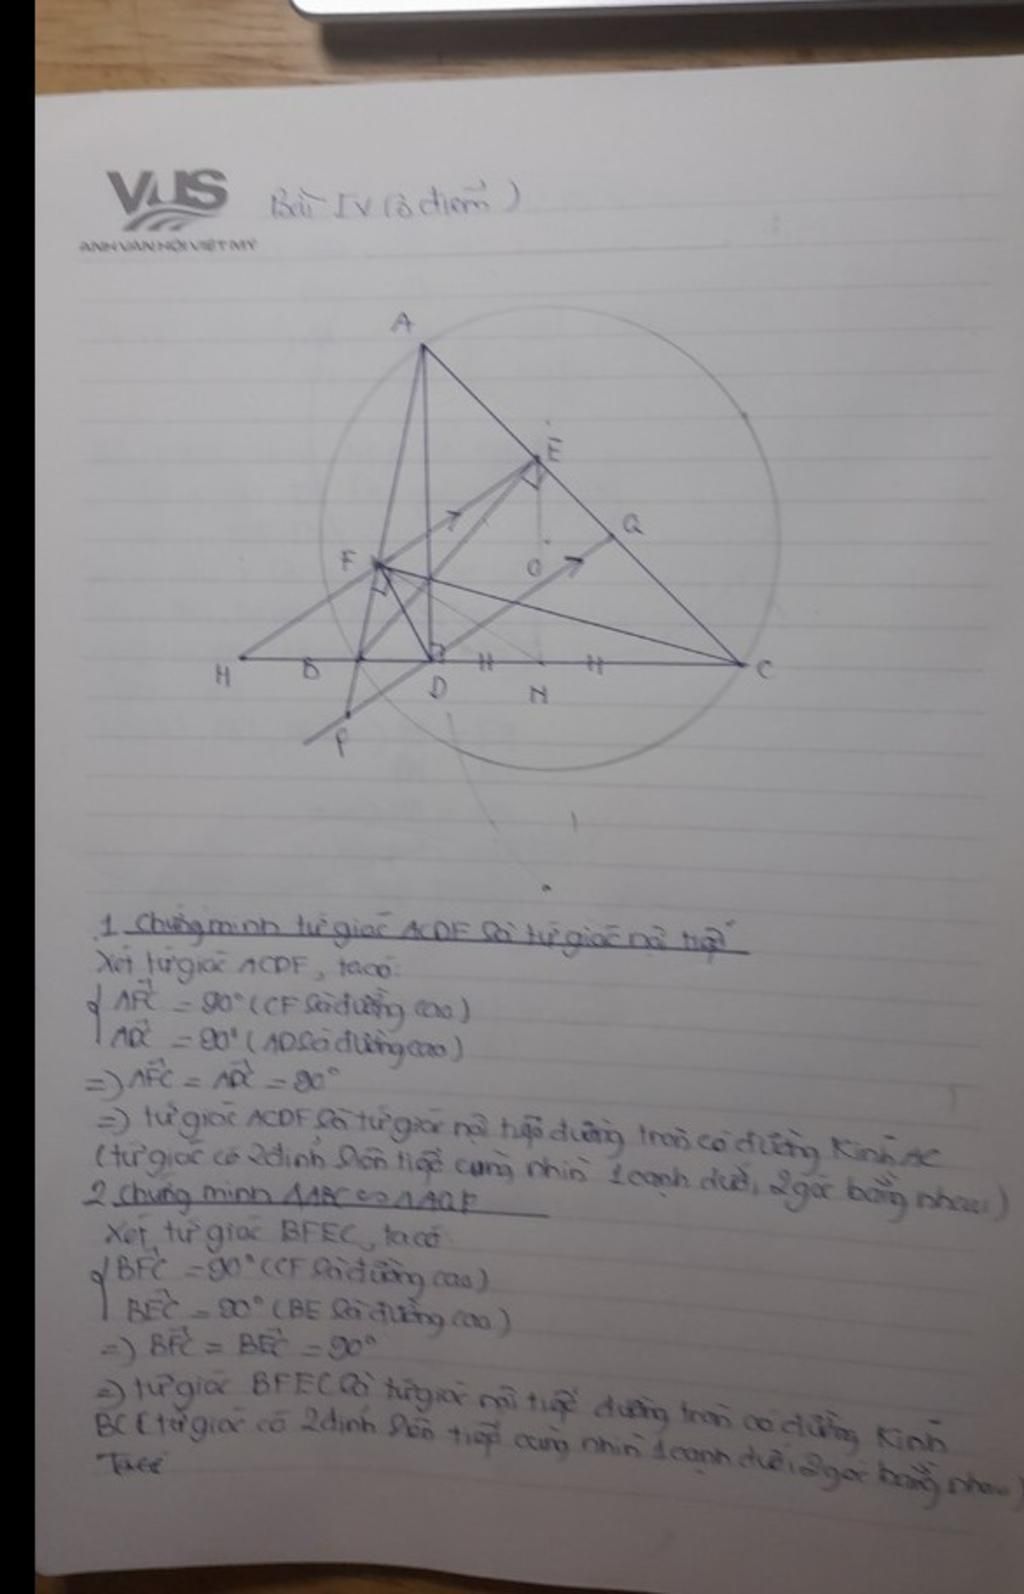 VUS
ANH VĂN HỘI VIỆT MỸ
Bài IV (3 điểm)
A
E
Q
F
O
H
B
D
N
C
P
1. Chứng minh tứ giác ACDF là tứ giác nội tiếp
Xét tứ giác ACDF, ta có:
AFC = 90° (CF là đường cao)
ADC = 90° (AD là đường cao)
=) AFC = ADC = 90°
=) tứ giác ACDF là tứ giác nội tiếp đường tròn có đường kính AC
(tứ giác có 2 đỉnh liên tiếp cùng nhìn 1 cạnh dưới 2 góc bằng nhau)
2. Chứng minh ΔABC ∽ ΔAQP
Xét tứ giác BFEC, ta có
BFC = 90° (CF là đường cao)
BEC = 90° (BE là đường cao)
=) BFC = BEC = 90°
=) tứ giác BFEC là tứ giác nội tiếp đường tròn có đường kính
BC (tứ giác có 2 đỉnh liên tiếp cùng nhìn 1 cạnh dưới 2 góc bằng nhau)
Ta có